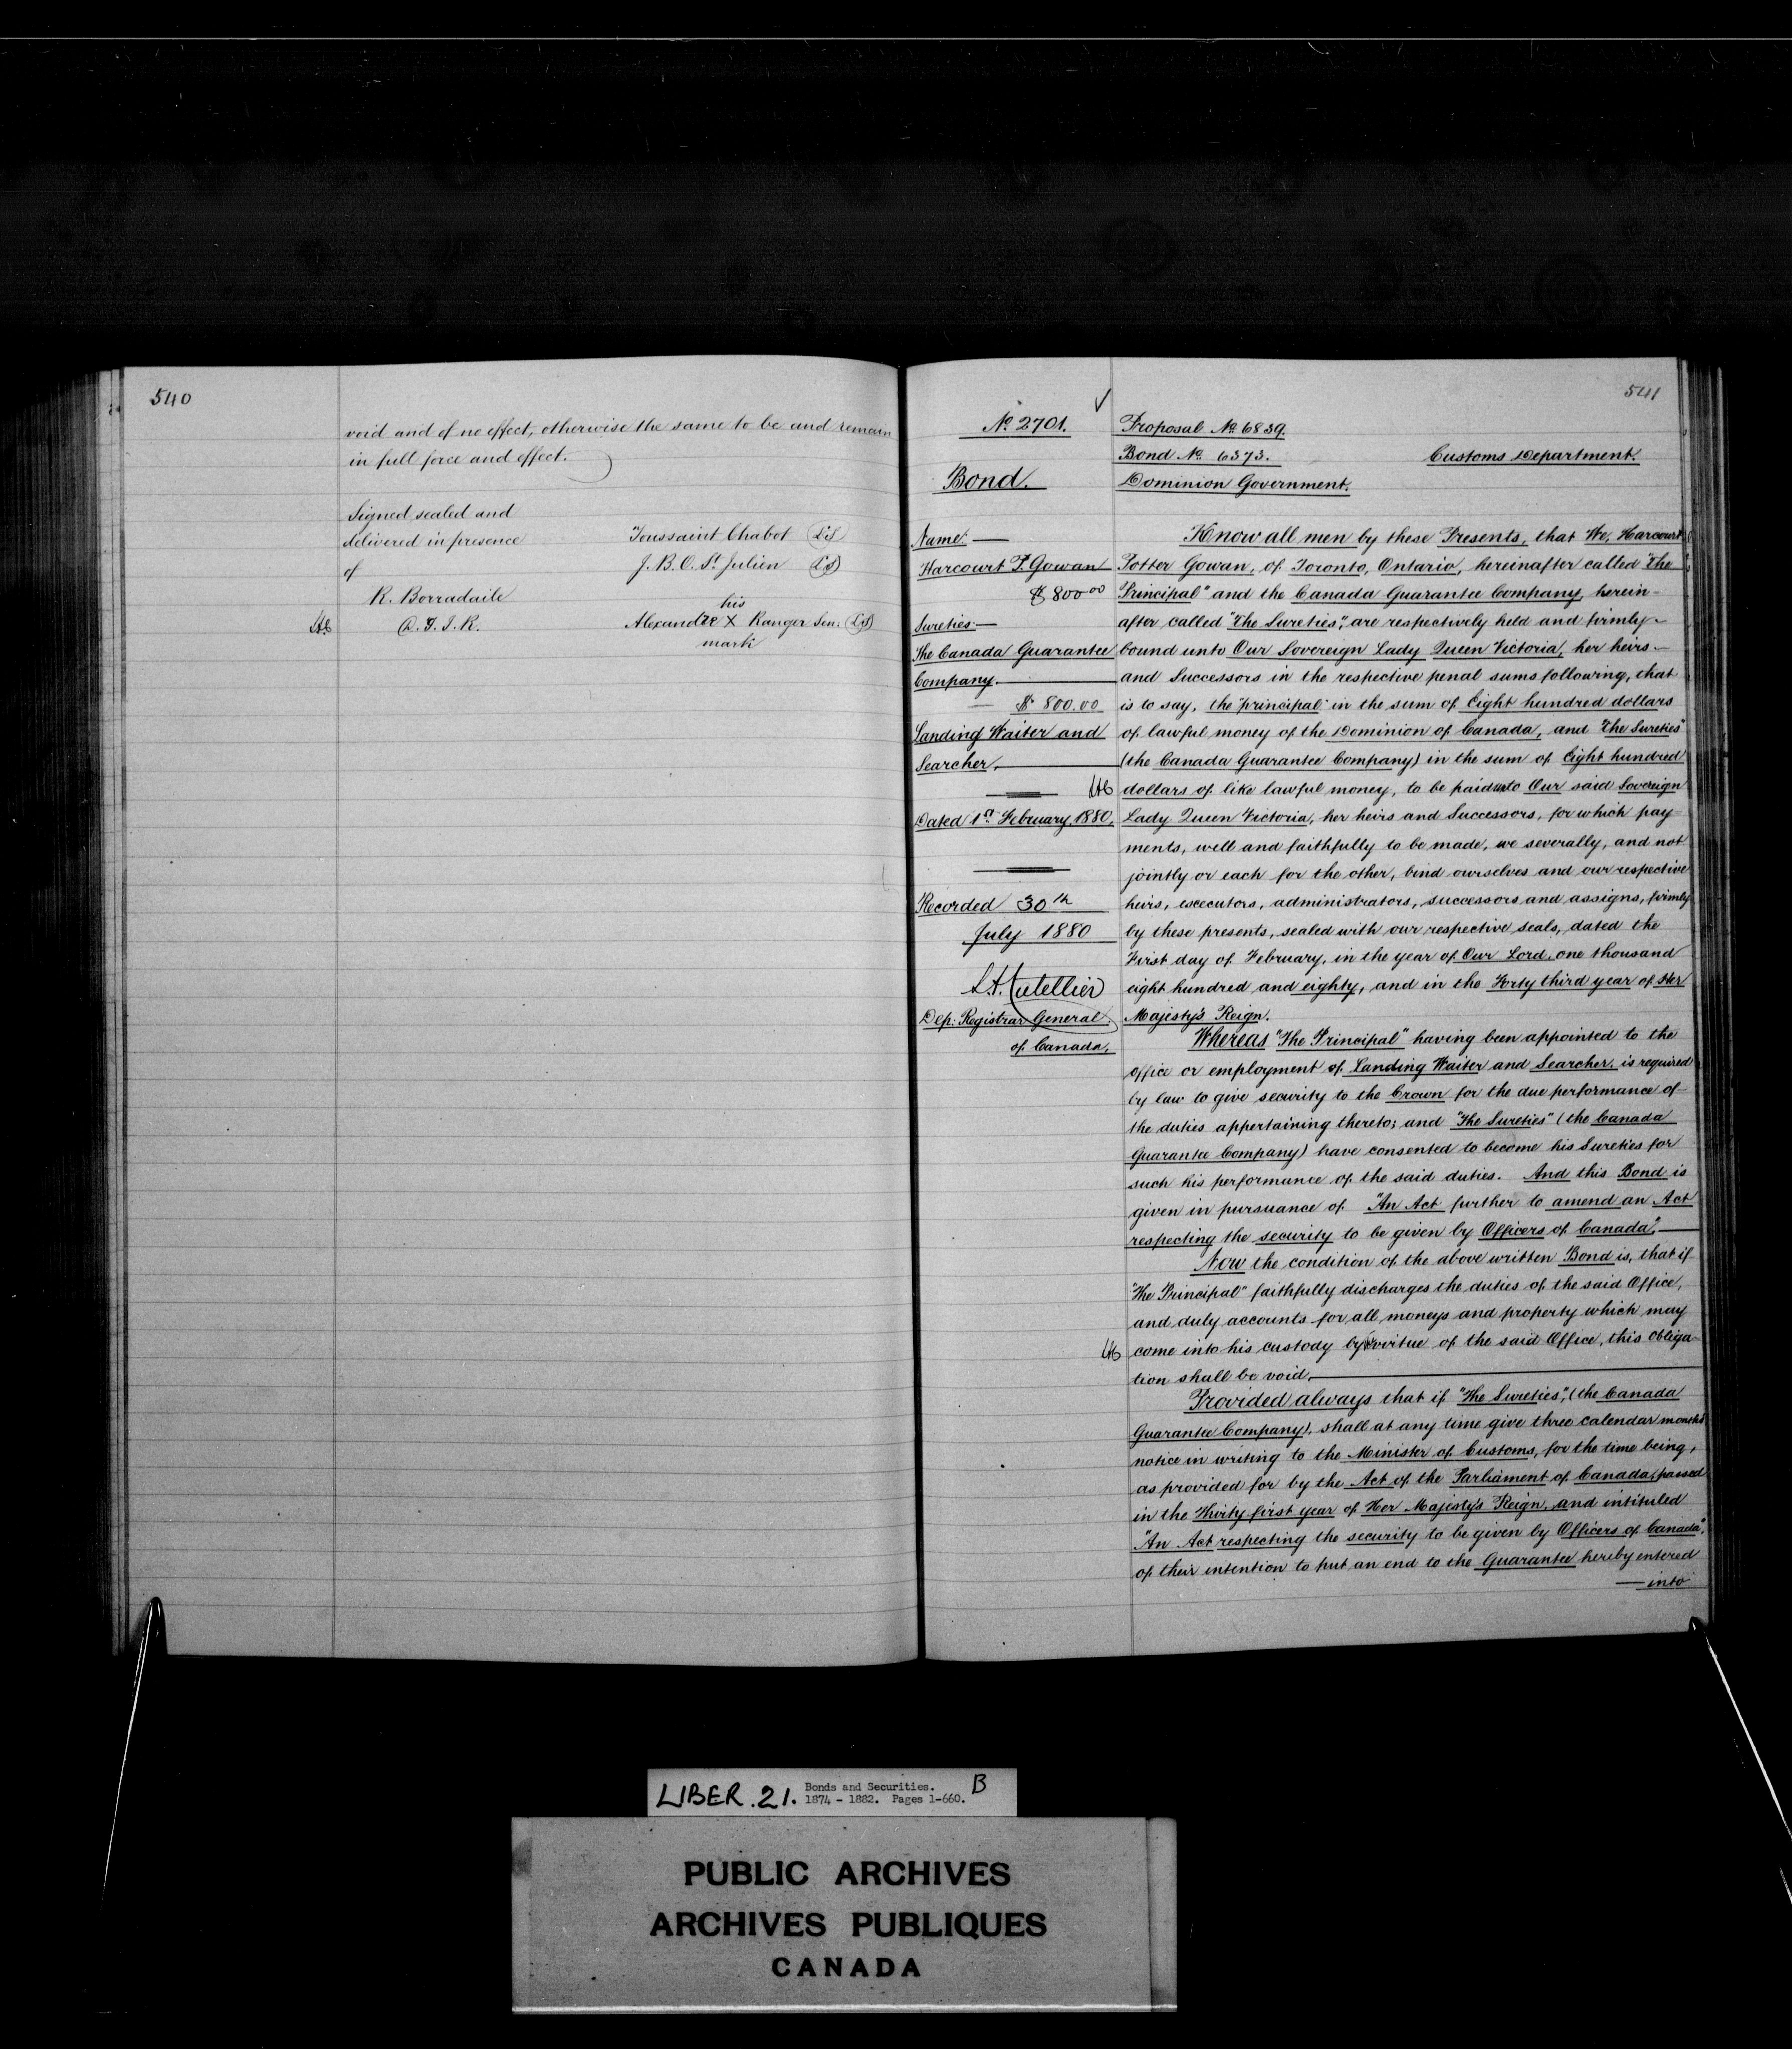 540
void and of no effect, otherwise the same to be and remain
in full force and effect.
Signed sealed and
delivered in presence
of
R. Borradaile
A. F. I. R.
Toussaint Chabot LS
J. B. O. St Julien LS
his
Alexandre X Ranger Sen: LS
mark
541
No 2701.
Bond.
Name:
Harcourt P. Gowan
$800 00
Sureties:
The Canada Guarantee
Company.
$800.00
Landing Waiter and
Searcher.
Dated 1st February, 1880.
Recorded 30th
July 1880
L. A. Catellier
Dep: Registrar General
of Canada.
Proposal No 6839.
Bond No 6373. Customs Department.
Dominion Government.
Know all men by these Presents, that We, Harcourt
Potter Gowan, of Toronto, Ontario, hereinafter called "The
Principal" and the Canada Guarantee Company, herein-
after called "The Sureties", are respectively held and firmly
bound unto Our Sovereign Lady Queen Victoria, her heirs
and Successors in the respective penal sums following, that
is to say, the "principal" in the sum of Eight hundred dollars
of lawful money of the Dominion of Canada, and "The Sureties"
(the Canada Guarantee Company) in the sum of Eight hundred
dollars of like lawful money, to be paid unto Our said Sovereign
Lady Queen Victoria, her heirs and Successors, for which pay-
ments, well and faithfully to be made, we severally, and not
jointly or each for the other, bind ourselves and our respective
heirs, executors, administrators, successors and assigns, firmly
by these presents, sealed with our respective seals, dated the
First day of February, in the year of Our Lord, one thousand
eight hundred and eighty, and in the Forty third year of Her
Majesty's Reign.
Whereas "The Principal" having been appointed to the
office or employment of Landing Waiter and Searcher, is required
by law to give security to the Crown for the due performance of
the duties appertaining thereto; and "The Sureties" (the Canada
Guarantee Company) have consented to become his Sureties for
such his performance of the said duties. And this Bond is
given in pursuance of "An Act further to amend an Act
respecting the security to be given by Officers of Canada".
Now the condition of the above written Bond is, that if
"The Principal" faithfully discharges the duties of the said Office,
and duly accounts for all moneys and property which may
come into his custody by virtue of the said Office, this obliga-
tion shall be void.
Provided always that if "The Sureties", (the Canada
Guarantee Company), shall at any time give three calendar months
notice in writing to the Minister of Customs, for the time being,
as provided for by the Act of the Parliament of Canada, passed
in the Thirty first year of Her Majesty's Reign, and intituled
"An Act respecting the security to be given by Officers of Canada",
of their intention to put an end to the Guarantee hereby entered
into
LIBER. 21. Bonds and Securities. B
1874 - 1882. Pages 1-660.
PUBLIC ARCHIVES
ARCHIVES PUBLIQUES
CANADA